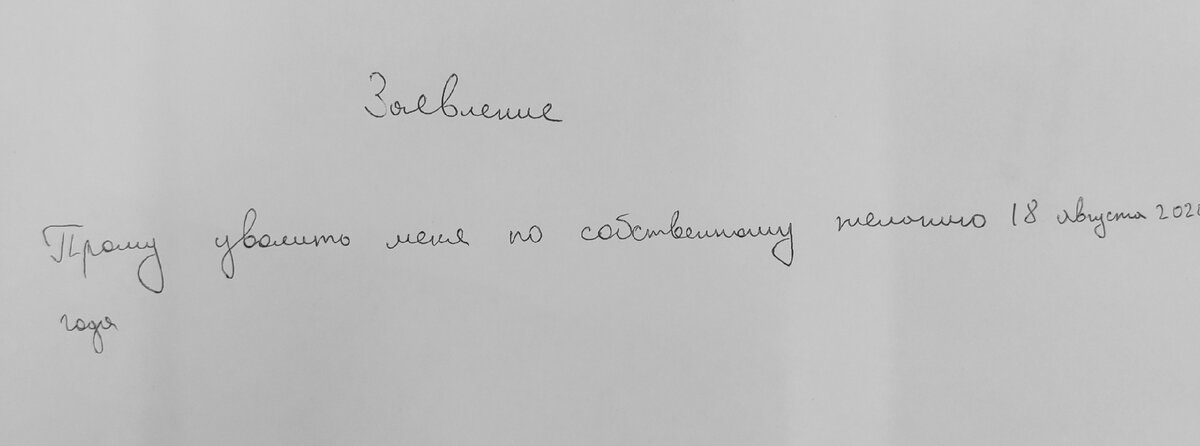 Заявление
Прошу уволить меня по собственному желанию 18 августа 202
года